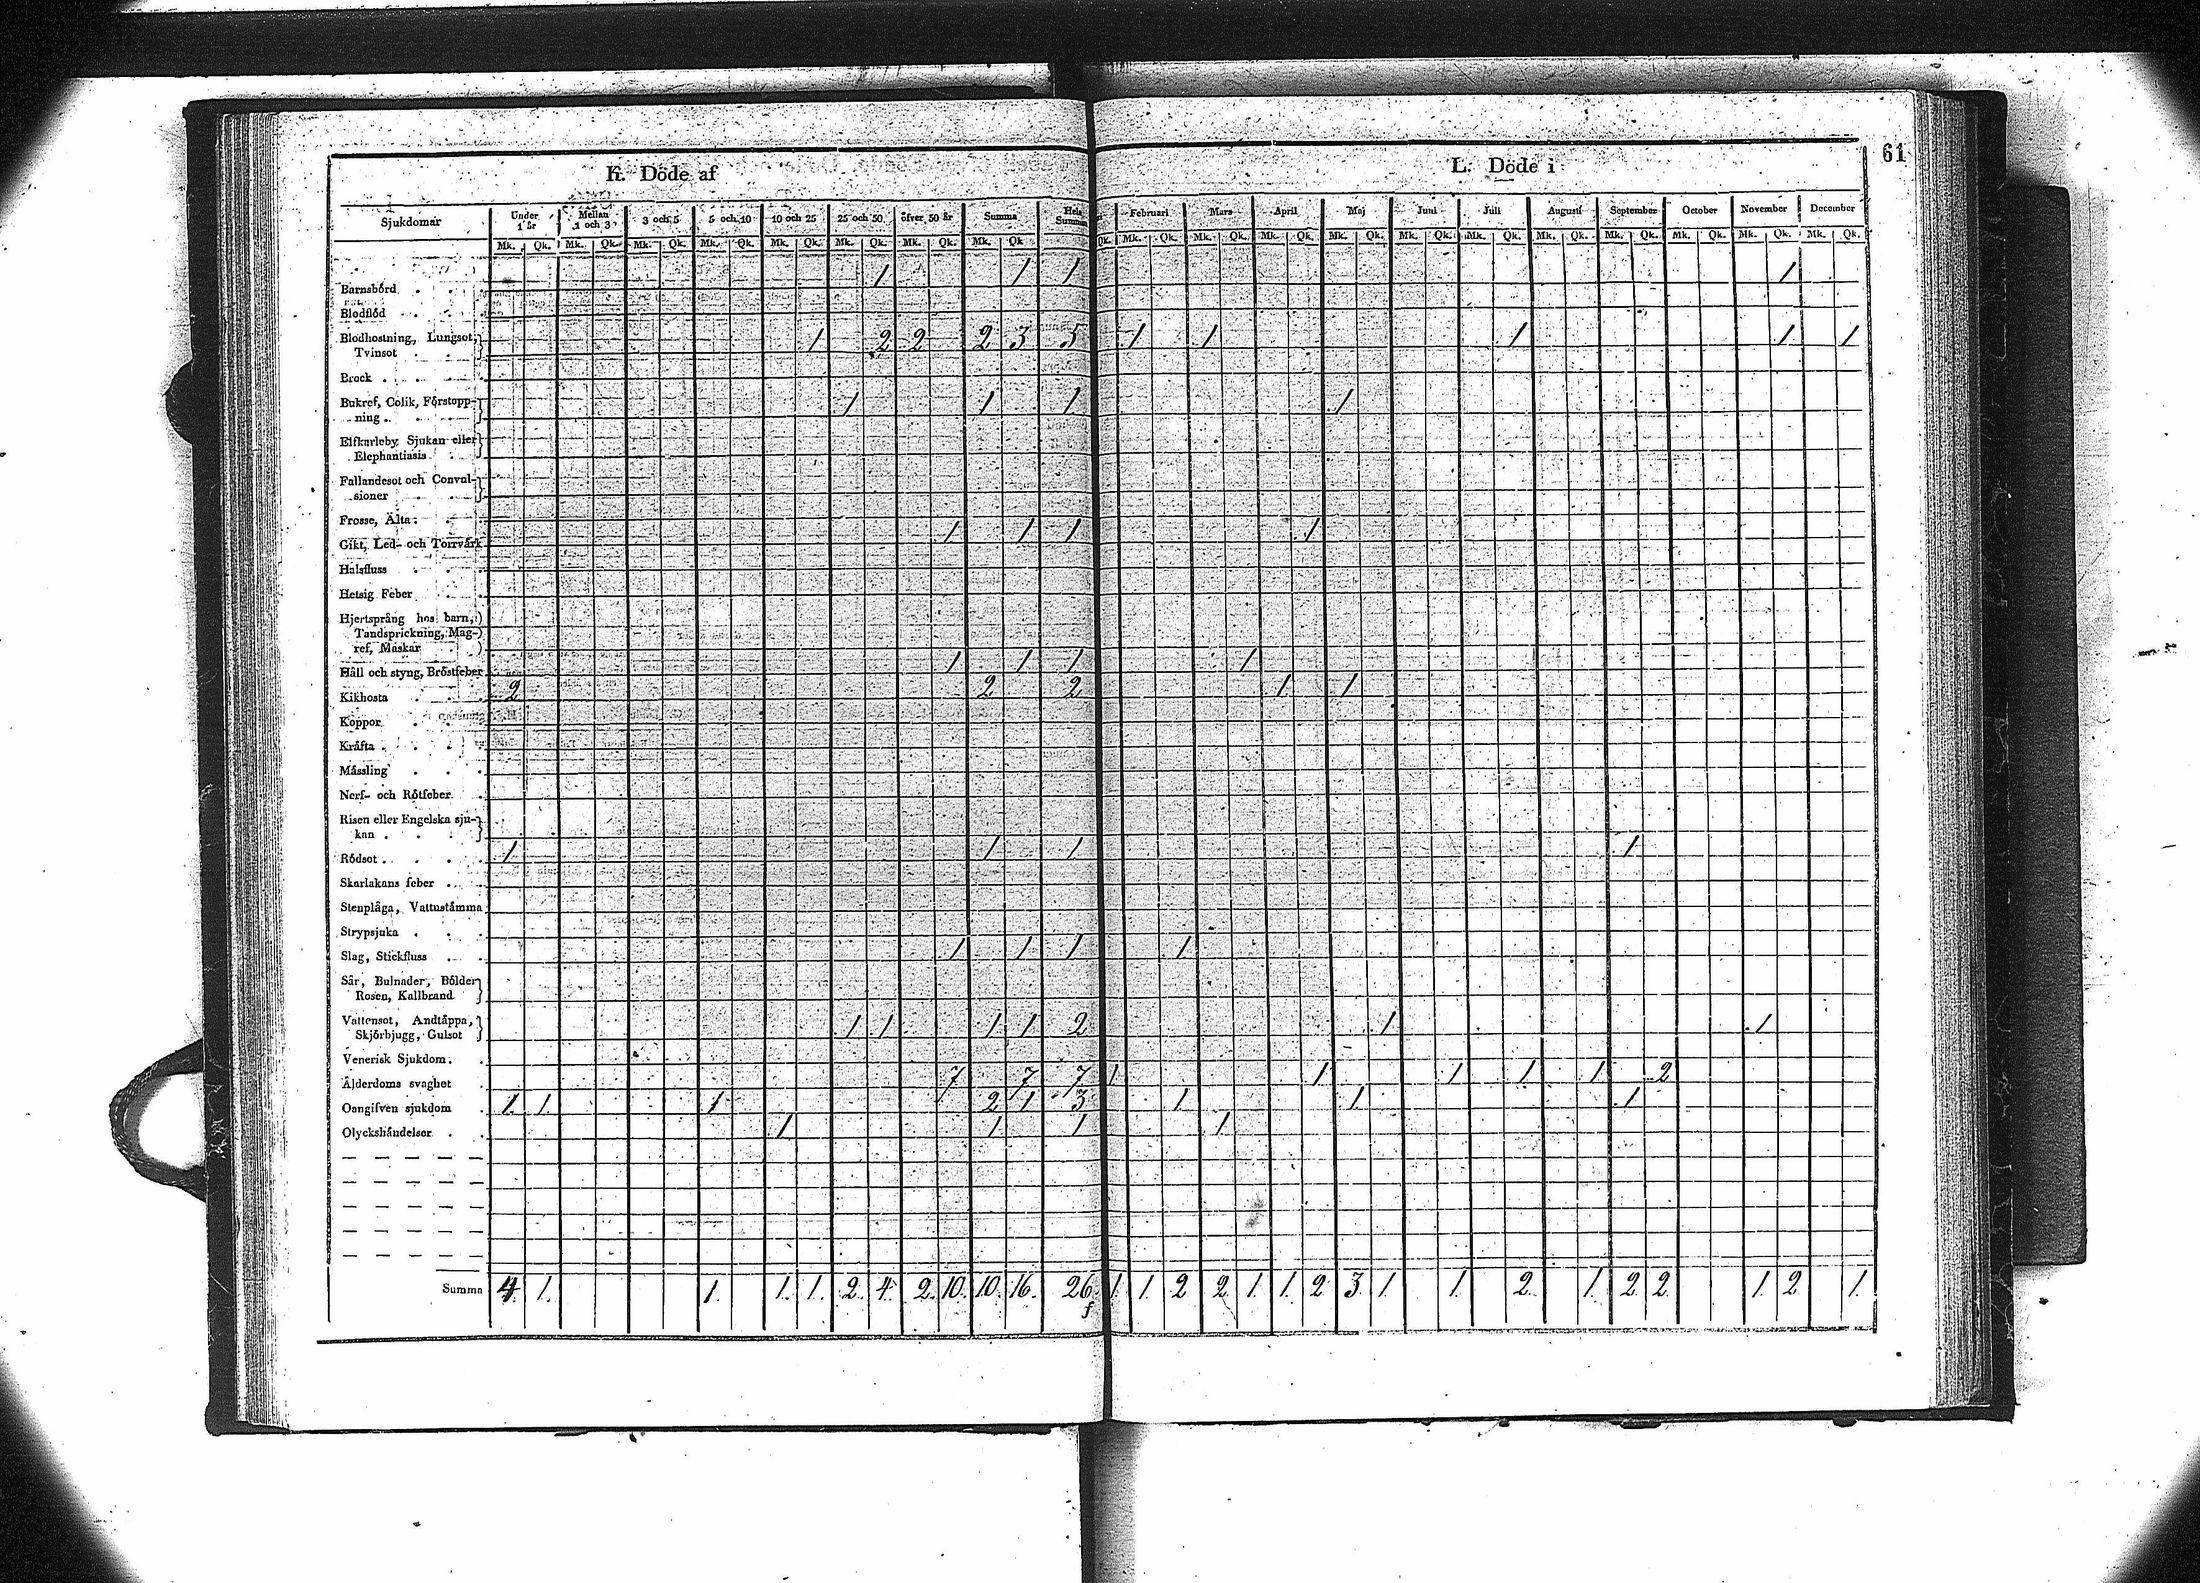 61
K. Döde af
L. Döde i
Sjukdomar Under 1 år Mellan 1 och 3 3 och 5 5 och 10 10 och 25 25 och 50 öfver 50 år Summa Hela Summan Februari Mars April Maj Juni Juli Augusti September October November December
Mk. Qk. Mk. Qk. Mk. Qk. Mk. Qk. Mk. Qk. Mk. Qk. Mk. Qk. Mk. Qk. Qk. Mk. Qk. Mk. Qk. Mk. Qk. Mk. Qk. Mk. Qk. Mk. Qk. Mk. Qk. Mk. Qk. Mk. Qk. Mk. Qk. Mk. Qk.
Barnsbörd . . . 1 1 1 1
Blodflöd . . .
Blodhostning, Lungsot,
Tvinsot . . . 1 2 2 2 3 5 1 1 1 1 1
Brock . . . .
Bukref, Colik, Förstopp-
ning . . . . 1 1 1 1
Elfkarleby Sjukan eller
Elephantiasis
Fallandesot och Convul-
sioner
Frosse, Älta . . .
Gikt, Led- och Torrvärk 1 1 1 1
Halsfluss . . .
Hetsig Feber . . .
Hjertsprång hos barn,
Tandsprickning, Mag-
ref, Maskar
Håll och styng, Bröstfeber 1 1 1 1
Kikhosta . . . 2 2 2 1 1
Koppor . . .
Kräfta . . . .
Mässling . . .
Nerf- och Rötfeber .
Risen eller Engelska sju-
kan . . . .
Rödsot . . . . 1 1 1 1
Skarlakans feber . .
Stenplåga, Vattustämma
Strypsjuka . . .
Slag, Stickfluss . . 1 1 1 1
Sår, Bulnader, Bölder
Rosen, Kallbrand
Vattensot, Andtäppa,
Skjörbjugg, Gulsot 1 1 1 1 2 1 1
Venerisk Sjukdom . .
Ålderdoms svaghet . 7 7 7 1 1 1 1 1 2
Oangifven sjukdom . 1 1 1 2 1 3 1 1 1
Olyckshändelser . . 1 1 1 1
Summa 4 1. 1. 1. 1. 2. 4. 2. 10. 10. 16. 26. 1 1. 2 2 1. 1. 2 3. 1. 1. 2. 1. 2 2. 1. 2 1.